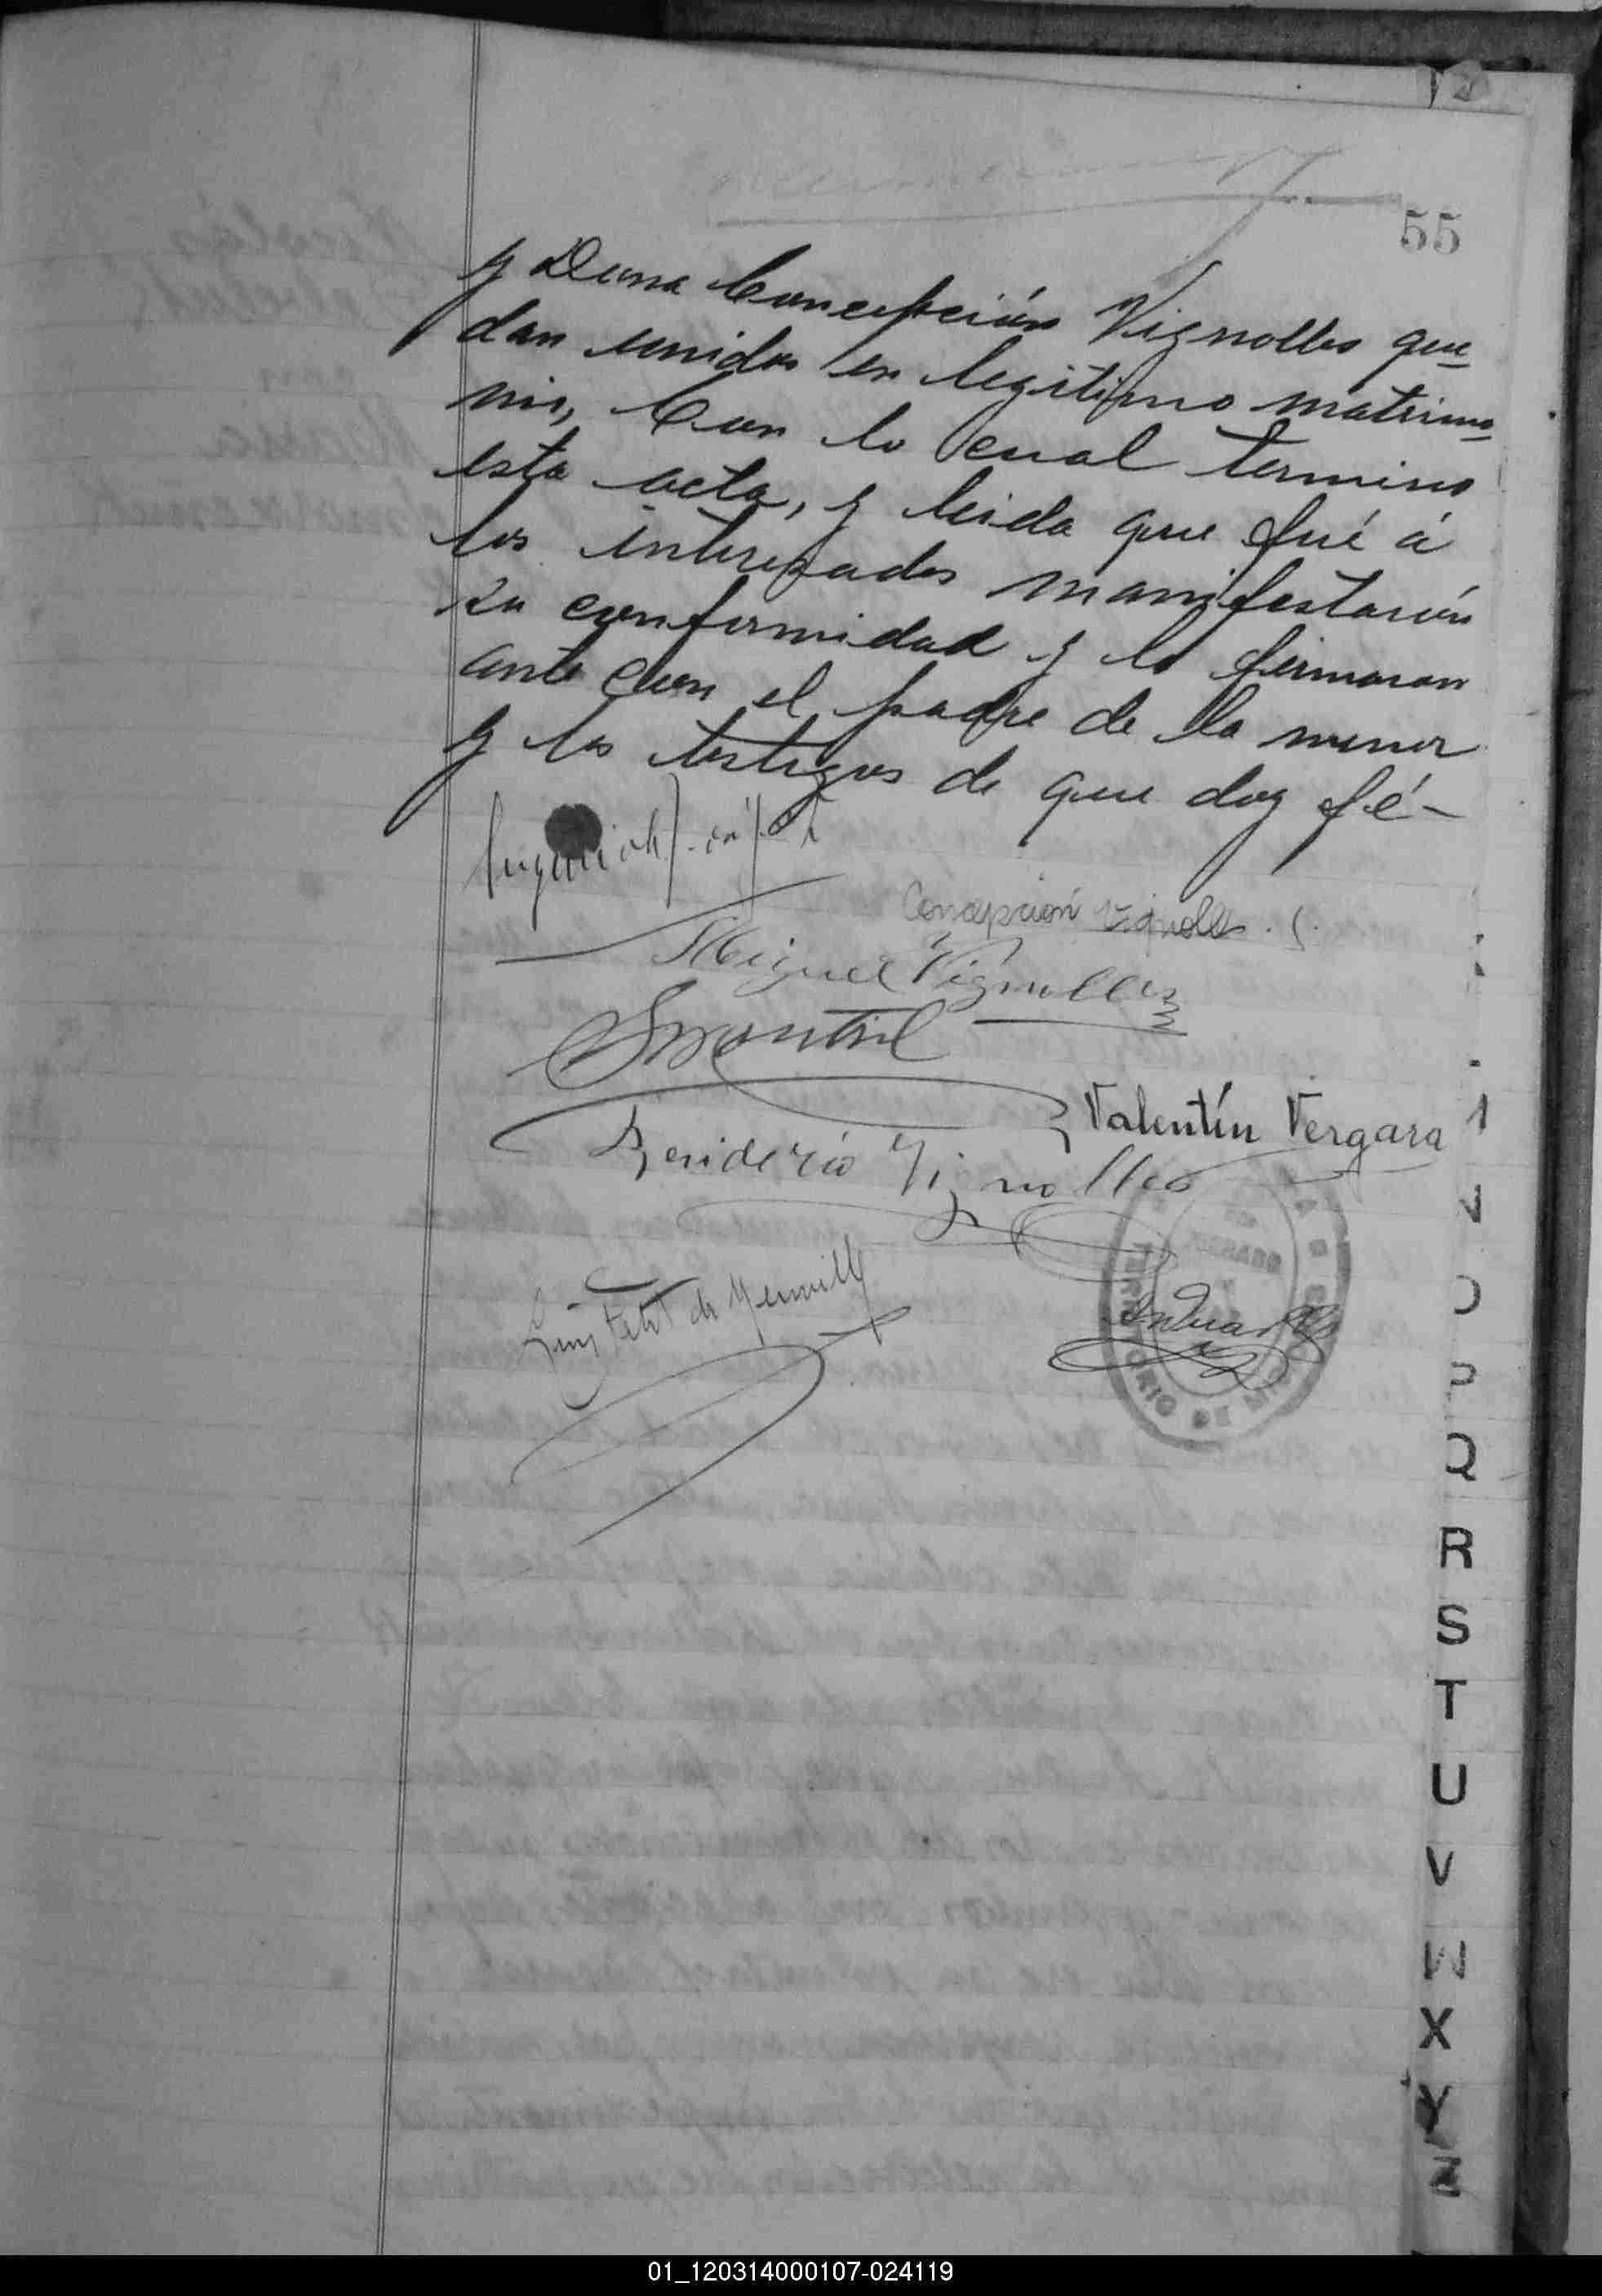 55
y Dona Concepción Vignolles que-
dan unidos en legitimo matrimo-
nio, Con lo cual termino
esta acta, y leida que fué á
los interesados manifestarón
su conformidad y la firmaron
ante con el padre de la menor
y los testigos de que doy fé-
Concepción Vignolles.
Miguel Vignolles
Valentín Vergara
Desiderio Vignolles
Luis de
N
O
P
Q
R
S
T
U
V
W
X
Y
Z
01_120314000107-024119